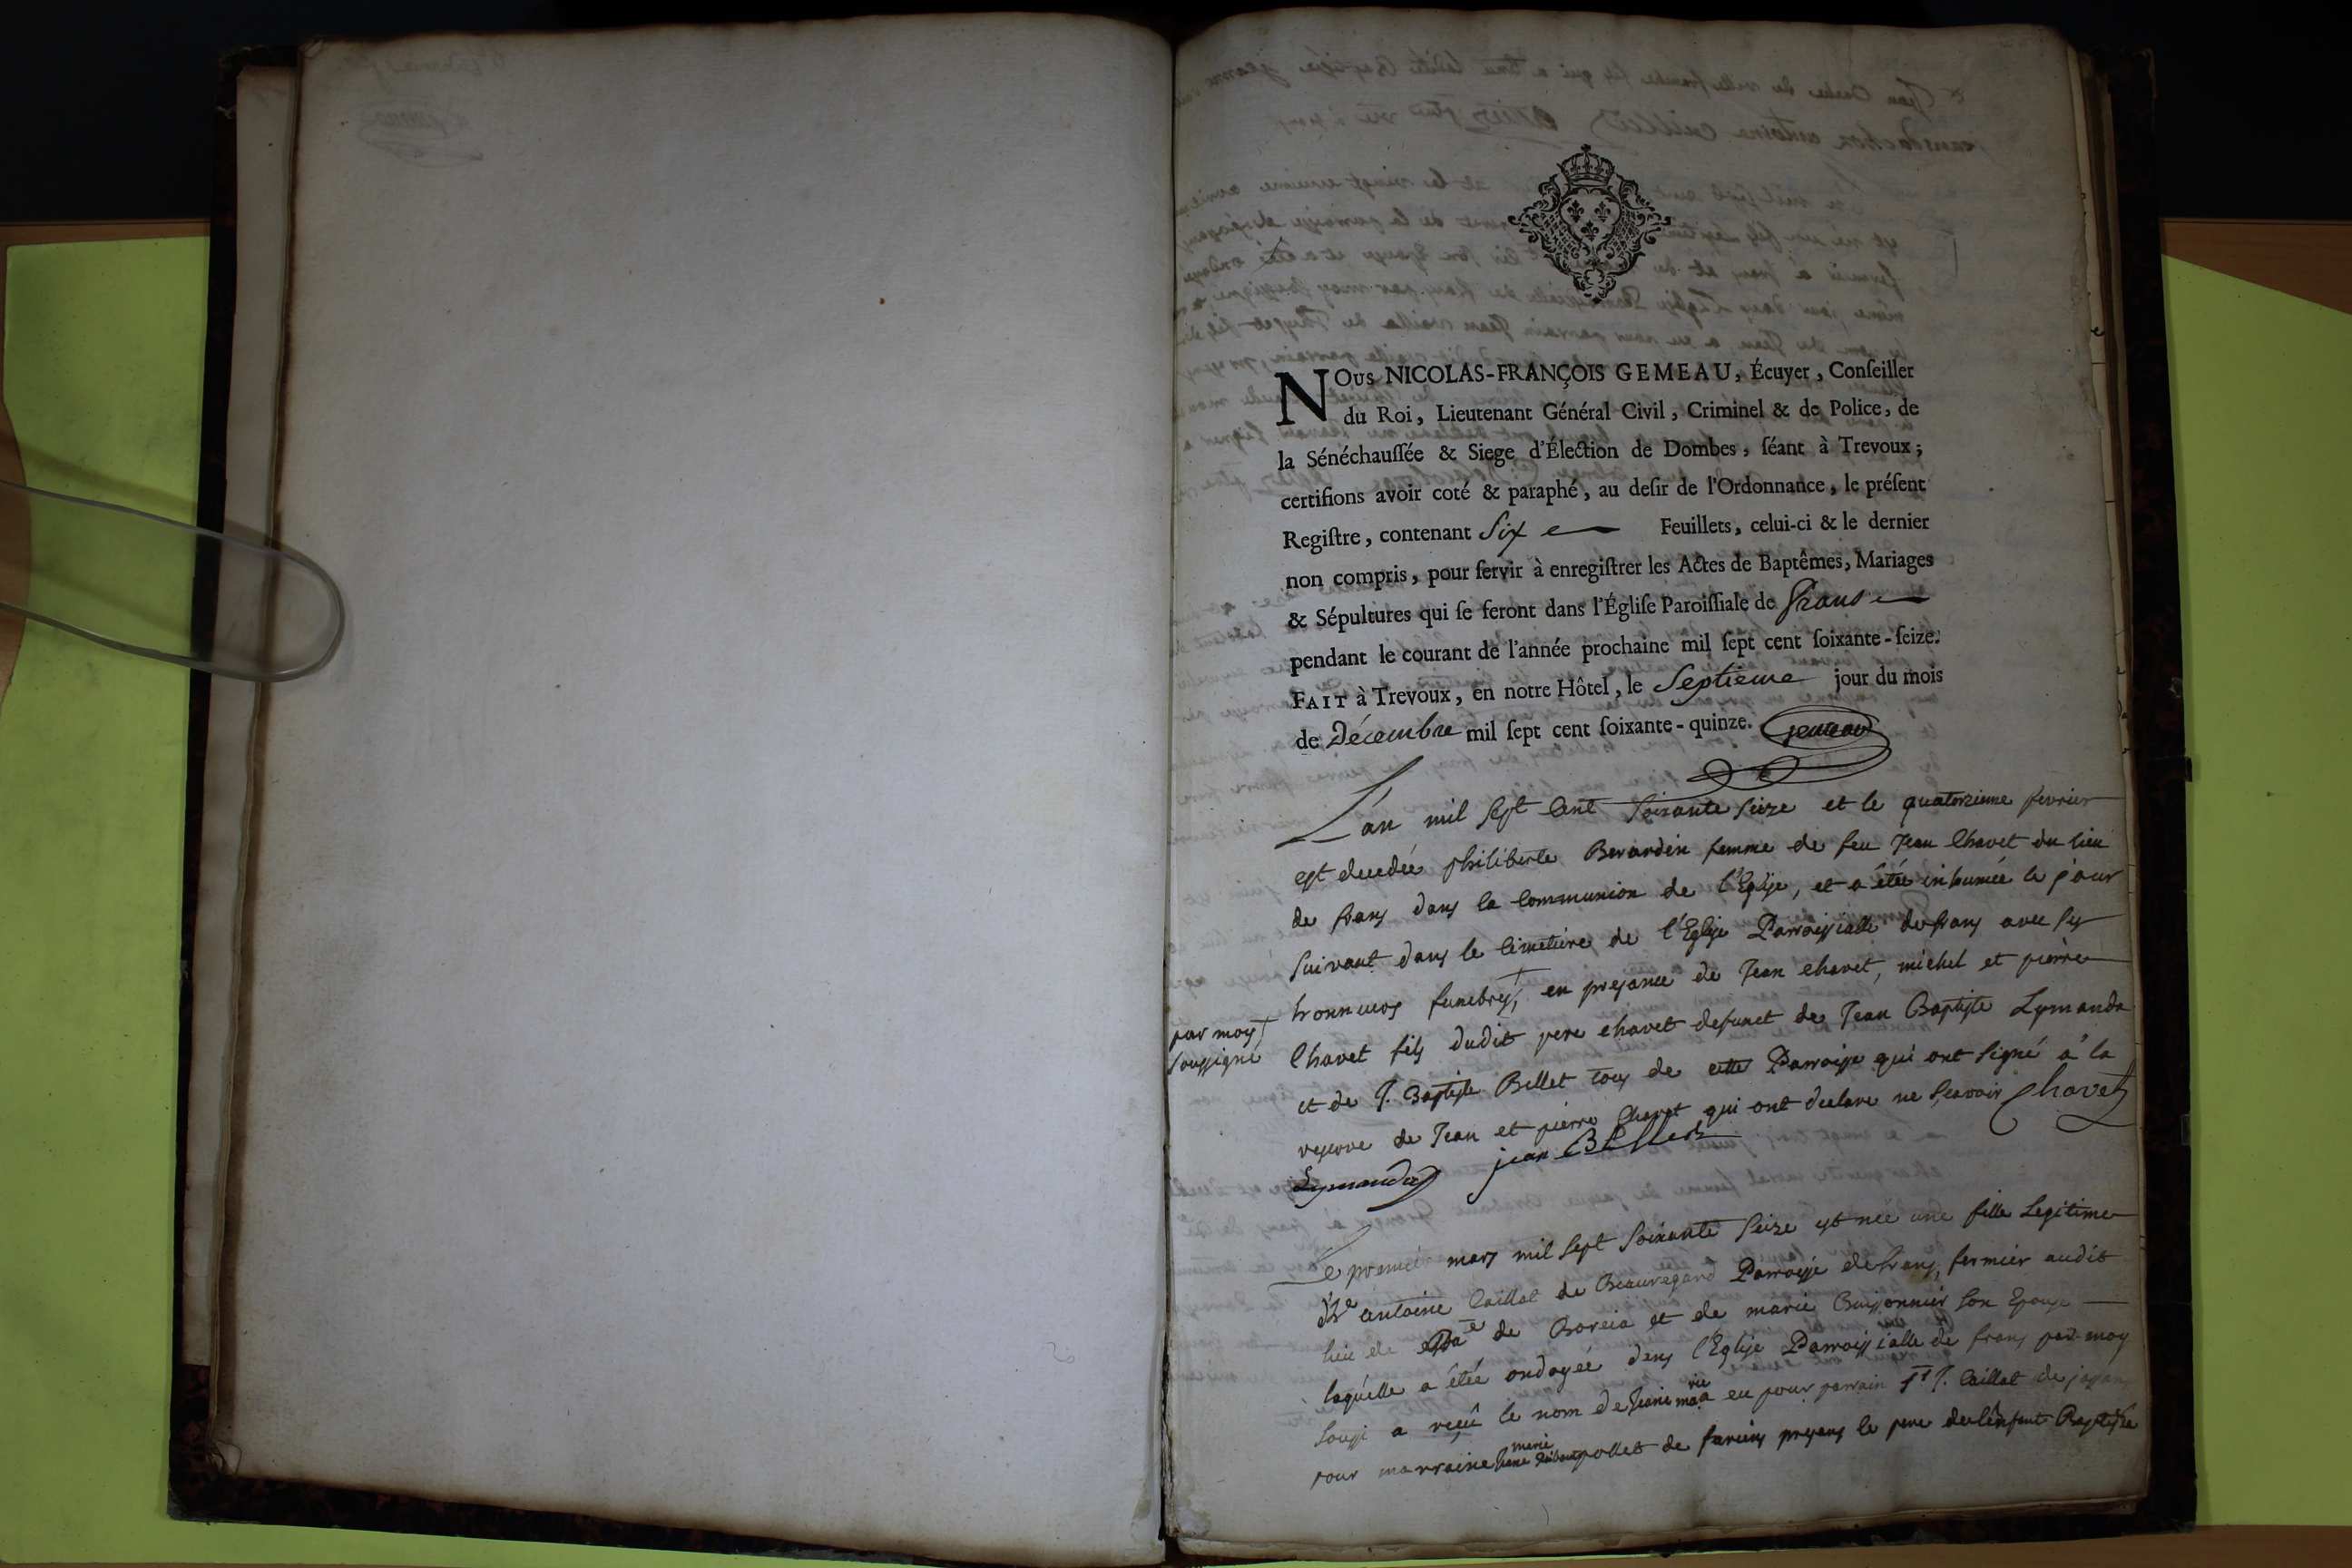 NOus NICOLAS-FRANÇOIS GEMEAU, Écuyer, Conſeiller
du Roi, Lieutenant Général Civil, Criminel & de Police, de
la Sénéchauſſée & Siege d'Élection de Dombes, ſéant à Trevoux;
certifions avoir coté & paraphé, au deſir de l'Ordonnance, le préſent
Regiſtre, contenant Six Feuillets, celui-ci & le dernier
non compris, pour ſervir à enregiſtrer les Actes de Baptêmes, Mariages
& Sépultures qui ſe feront dans l'Égliſe Paroiſſiale de frans
pendant le courant de l'année prochaine mil ſept cent ſoixante-ſeize.
FAIT à Trevoux, en notre Hôtel, le Septieme jour du mois
de décembre mil ſept cent ſoixante-quinze. gemeau
L'an mil sept Cent Soixante Seize et le quatorzieme fevrier
est decedée philiberte Berardin femme de feu Jean Chavet du lieu
de frans dans la Communion de l'Eglise, et a étée inhumée le jour
suivant dans le Cimetiere de l'Eglise Parroissialle de frans avec ses
honneurs funebres, en presance de Jean chavet, michel et pierre
par moy
soussigné
Chavet fils dudit pere chavet defunct de Jean Baptiste Lymandas
et de J. Baptiste Billet tous de cette Parroisse qui ont signé à la
reserve de Jean et pierre Chavet qui ont declare ne scavoir Chavet
Lymandas jean Billet
Le premier mars mil sept Soixante Seize est née une fille Legitime
antoine Caillat de Beauregard Parroisse de frans, fermier audit
lieu de de et de marie Buissonnier son Epouse
laquelle a étée ondoyée dans l'Eglise Parroissialle de frans par moy
soussi a reçû le nom de marie a eu pour parrain J. Caillat de
pour marraine marie pollet de fareins presans le pere de l'enfant Baptiste